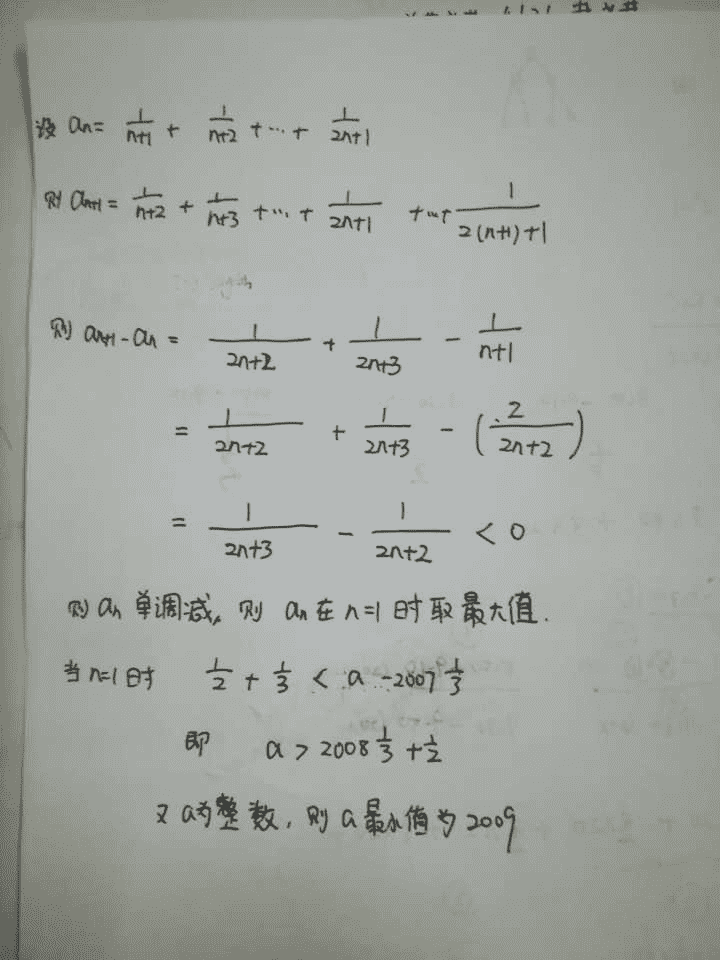 设 aₙ = 1/(n+1) + 1/(n+2) + … + 1/(2n+1)
则 aₙ₊₁ = 1/(n+2) + 1/(n+3) + … + 1/(2n+1) + … + 1/(2(n+1)+1)
则 aₙ₊₁ - aₙ = 1/(2n+2) + 1/(2n+3) - 1/(n+1)
= 1/(2n+2) + 1/(2n+3) - (2/(2n+2))
= 1/(2n+3) - 1/(2n+2) < 0
则 aₙ 单调减, 则 aₙ 在 n=1 时取最大值.
当 n=1 时 1/2 + 1/3 < a - 2007 1/3
即 a > 2008 1/3 + 1/2
又 a为整数, 则 a 最小值为 2009